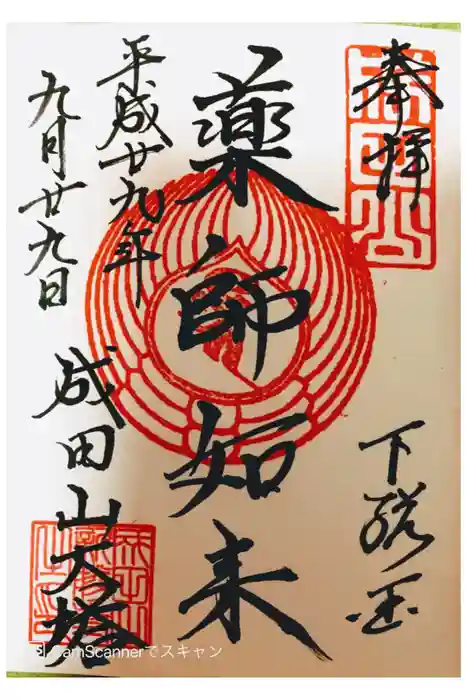 奉拝
下総国
薬師如来
平成廿九年
九月廿九日
成田山大塔
CamScannerでスキャン